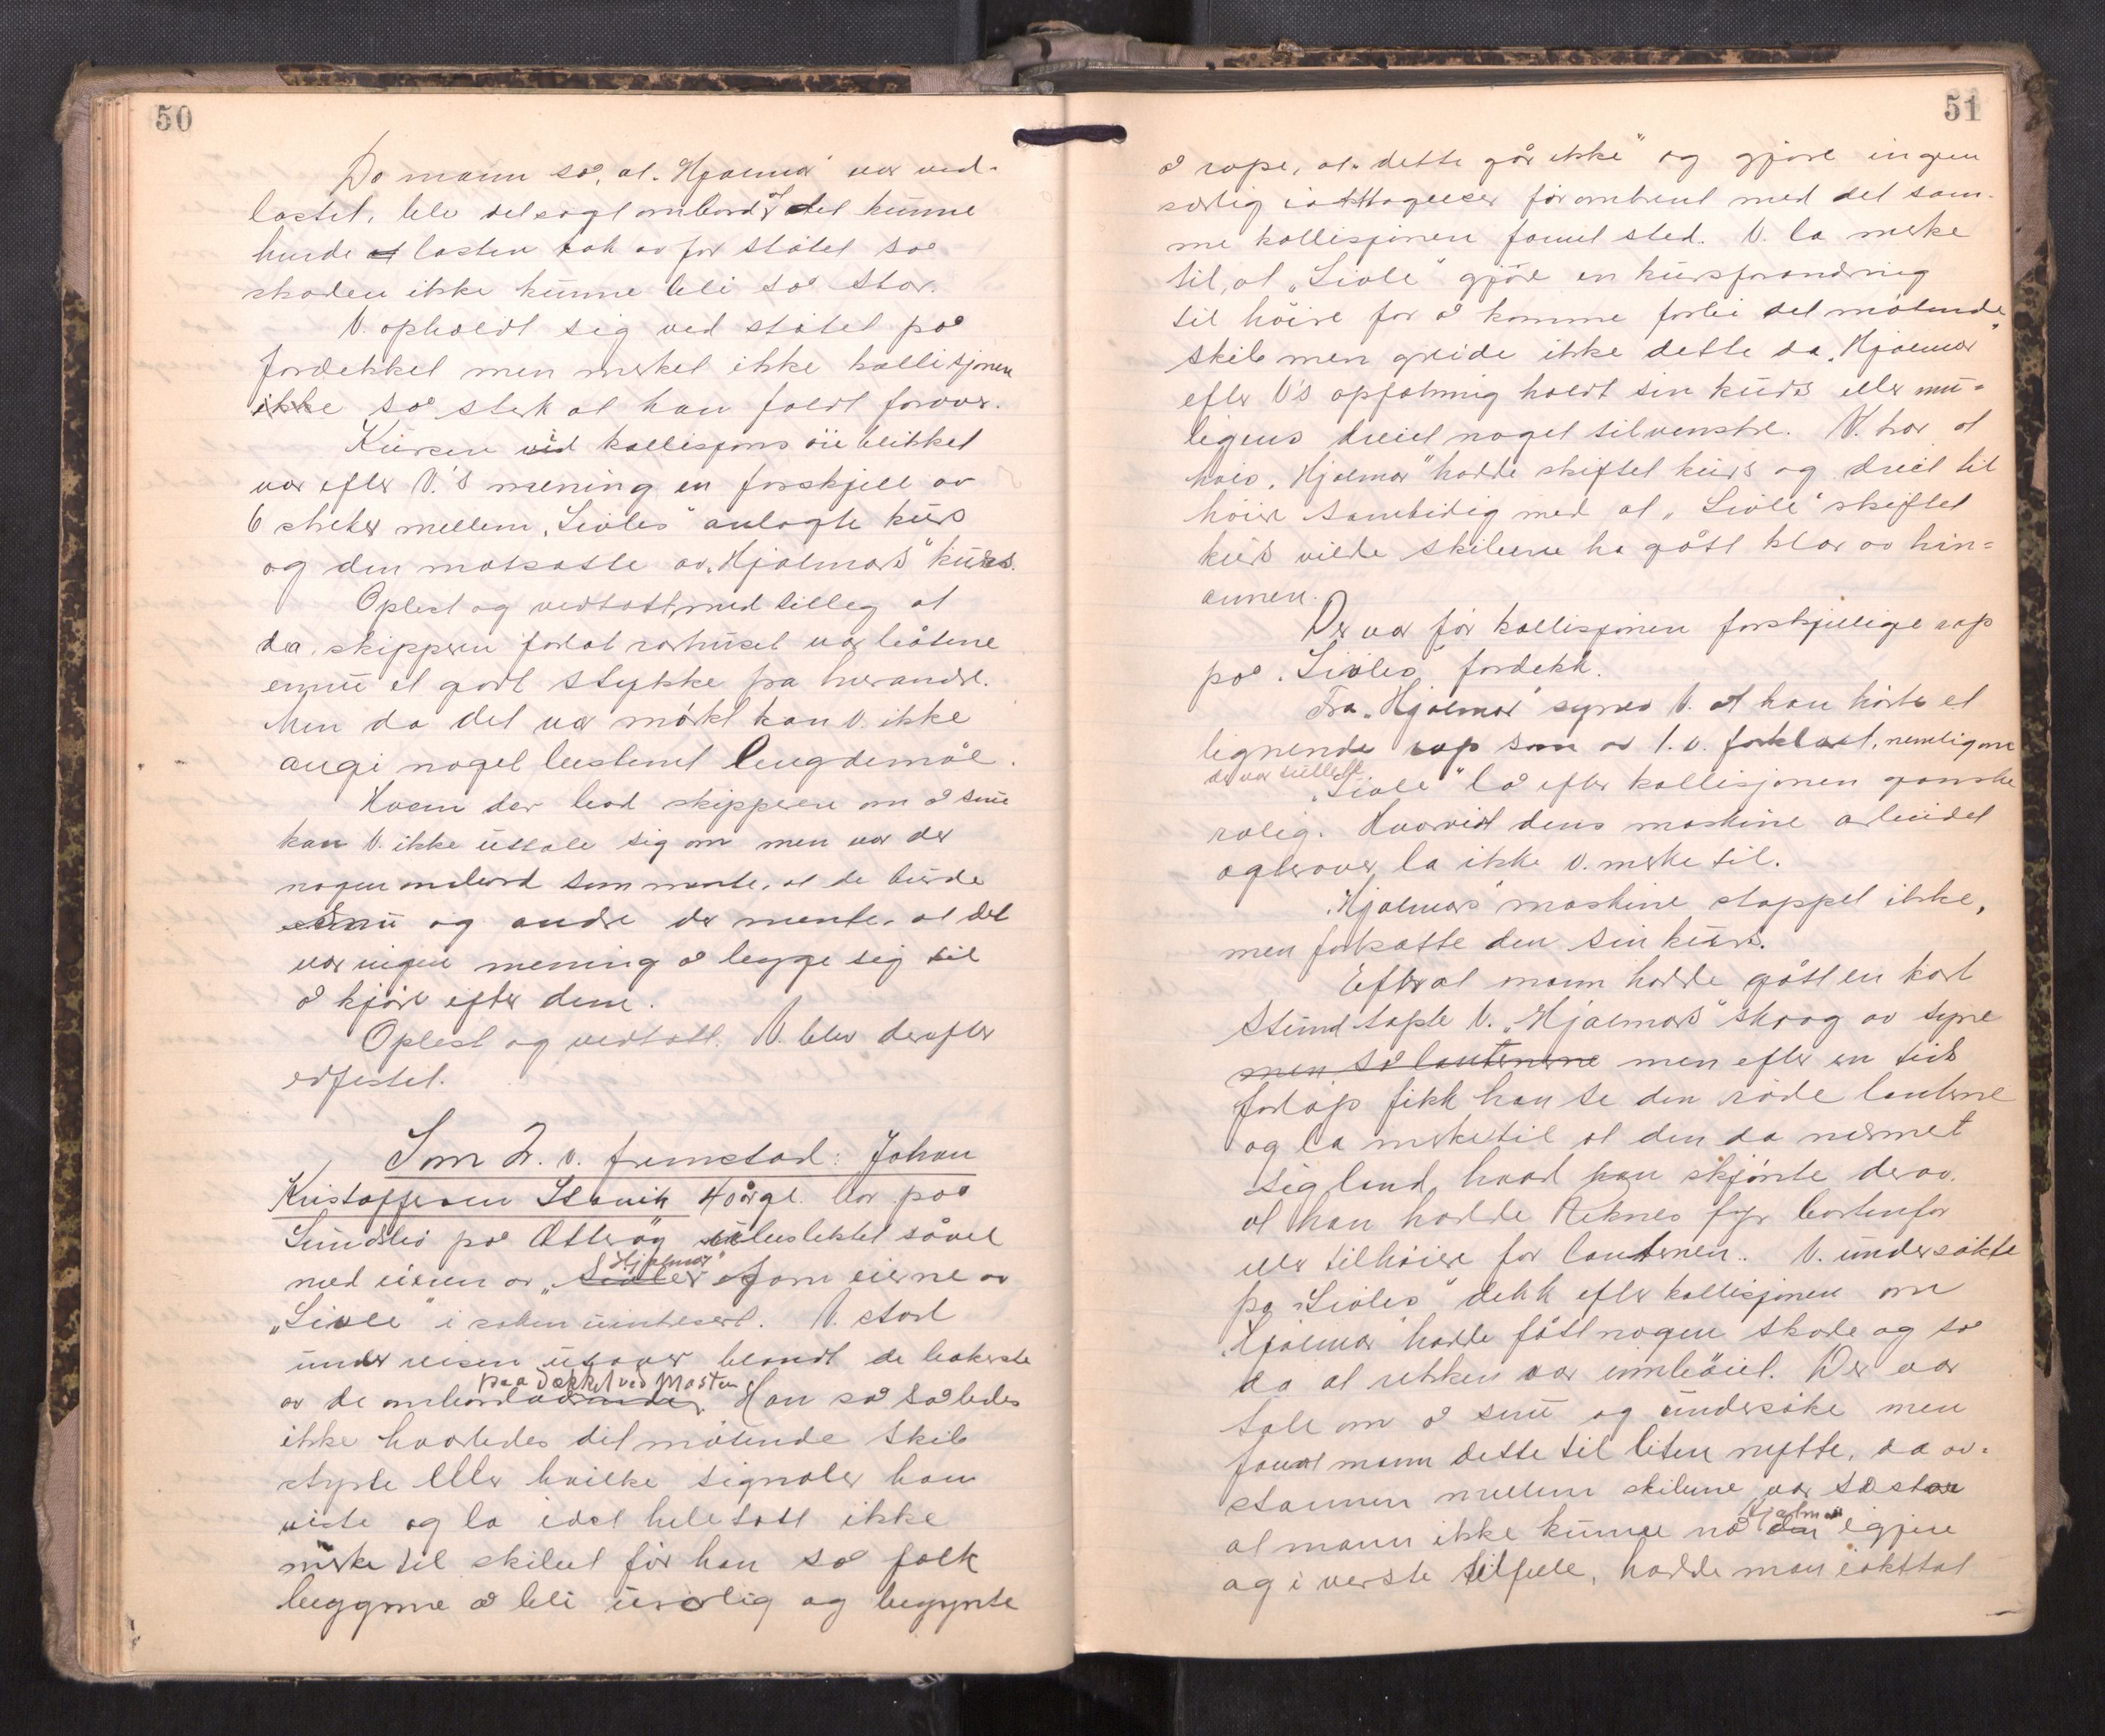 50
Da mann så, at "Hjalmar" var ved-
lastet, blev det sagt ombord at det kunne
hende at lasten tok av for støtet så
skaden ikke kunne bli så stor.
V. opholdt sig ved støtet på
fordekket men merket ikke kollisjonen
ikke så sterk at han faldt forover.
Kursen ved kollisjons öieblikket
var efter V.'s mening en forskjell av
6 streker mellem "Livles" anlagte kurs
og den motsatte av "Hjalmars" kurs.
Oplest og vedtatt, med tilleg at
da skipperen forlot rorhuset var båtene
ennu et godt stykke fra hverandre.
Men da det var mørkt kan V. ikke
angi noget bestemt lengdemål.
Hvem der bad skipperen om å snu
kan V. ikke uttale sig om men var der
nogen ombord som mente, at de burde
snu og andre der mente, at det
var ingen mening å legge sig til
å kjøre efter dem.
Oplest og vedtatt. V. blev derefter
edfestet.
Som 2. v. fremstod: Johan
Kristoffersen 40 år gl. bor på
Sundsbö på Otterøy ubeslektet såvel
med eieren av "Hjalmar" som eierne av
"Livle" i saken uinteresert. V. stod
under reisen utover blandt de bakerste
av de ombordværende paa dækket ved masten. Han så således
ikke hvorledes det møtende skib
styrte eller hvilke signaler han
viste og la i det hele tatt ikke
merke til skibet før han så folk
begynne å bli urolig og begynte
51
å rope, at "dette går ikke" og gjorde ingen
særlig iakttagelser før omtrent med det sam-
me kollisjonen fannt sted. V. la merke
til, at "Livle" gjøre en kursforandring
til höire for å komme forbi det møtende
skib men greide ikke dette da "Hjalmar"
efter V's opfatning holdt sin kurs eller mu-
ligens dreiet noget til venstre. V. tror at
hvis "Hjalmar" hadde skiftet kurs og dreiet til
höire samtidig med at "Livle" skiftet
kurs vilde skibene ha gått klar av hin-
annen.
Der var før kollisjonen forskjellige rop
på "Livles" fordekk.
Fra "Hjalmar" synes V. at han hørte et
lignende rop som av 1. v. forklart, nemlig om
de var
"Livle" lå efter kollisjonen ganske
rolig. Hvorvidt dens maskine arbeidet
agterover, la ikke V. merke til.
"Hjalmars" maskine stoppet ikke,
men fortsatte den sin kurs.
Efter at mann hadde gått en kort
stund tapte V. "Hjalmars" skrog av syne
men så lanternene men efter en tids
forløp fikk han se den røde lanterne
og la merke til at den da nærmet
sig land, hvad han skjønte derav.
at han hadde Reknes fyr bortenfor
eller til høire for lanternen. V. undersøkte
på "Livles" dekk efter kollisjonen om
"Hjalmar" hadde fått nogen skade og så
da at rekken var innbøiet. Der var
tale om å snu og undersøke men
fannt mann dette til liten nytte, da av-
stannen mellem skibene var så stor
at mann ikke kunne nå den "Hjalmar" igjen
og i verste tilfelle, hadde man iakttat